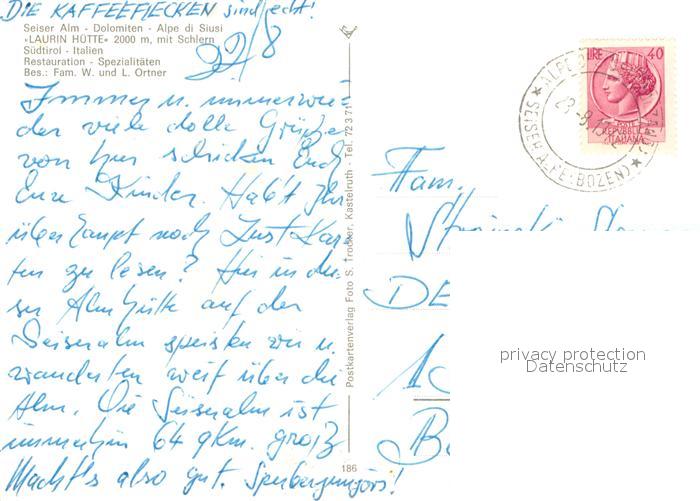 DIE KAFFEEFLECKEN sind echt!
Seiser Alm - Dolomiten - Alpe di Siusi
«LAURIN HÜTTE» 2000 m, mit Schlern
Südtirol - Italien
Restauration - Spezialitäten
Bes.: Fam. W. und L. Ortner
22/8
Immer u. immerwie=
der viele dolle Grüße
von hier schicken Euch
Eure Kinder. Habt Ihr
überhaupt noch Lust Kar-
ten zu lesen? Hier in die-
ser Almhütte auf der
Seiseralm speisten wir u.
wanderten weit über die
Alm. Die Seiseralm ist
immerhin 64 qkm. groß
Macht's also gut.
Postkartenverlag Foto S. Trocker, Kastelruth - Tel. 72 3 71
186
LIRE 40
POSTE
REPUBBLICA
ITALIANA
ALPE DI
SEISER ALPE (BOZEN)
Fam.
DE
privacy protection
Datenschutz